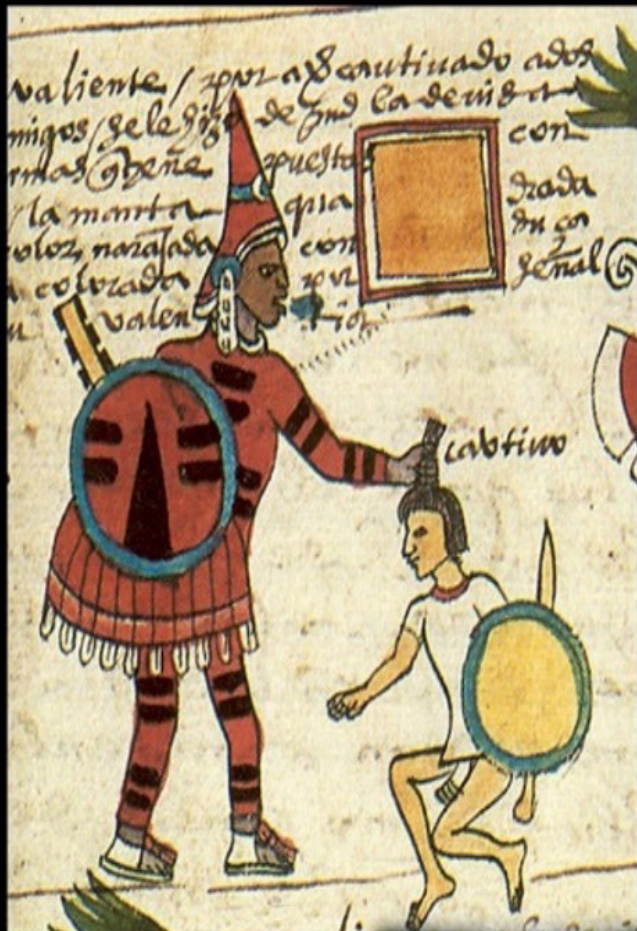 valiente / por aver cautivado a dos
migos / se le hizo de and la devisa
rmas que tiene puestas con
/ la manta qua drada
color naranjada con su ça
colorada por señal
u valen tia
captivo